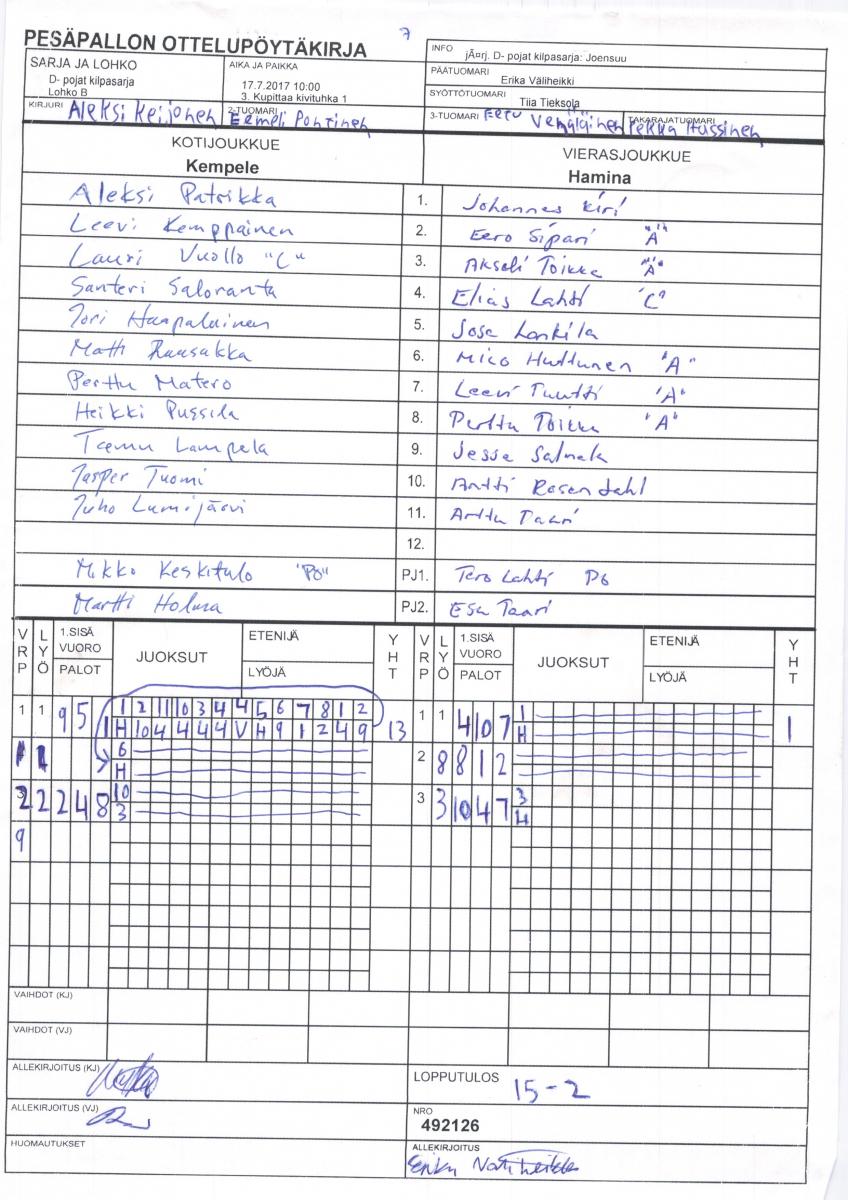 7
PESÄPALLON OTTELUPÖYTÄKIRJA
INFO jÃ¤rj. D- pojat kilpasarja: Joensuu
SARJA JA LOHKO
D- pojat kilpasarja
Lohko B
AIKA JA PAIKKA
17.7.2017 10:00
3. Kupittaa kivituhka 1
PÄÄTUOMARI Erika Väliheikki
SYÖTTÖTUOMARI Tiia Tieksola
KIRJURI Aleksi Keijonen
2-TUOMARI Eemeli Pontinen
3-TUOMARI Eetu Venäläinen
TAKARAJATUOMARI Pekka Hussinen
KOTIJOUKKUE
Kempele
VIERASJOUKKUE
Hamina
Aleksi Patrikka 1. Johannes Kiri
Leevi Kemppainen 2. Eero Sipari "A"
Lauri Vuollo "C" 3. Akseli Toikka "A"
Santeri Saloranta 4. Elias Lahti "C"
Jori Haapalainen 5.
Matti Raasakka 6. Mico Huttunen "A"
Perttu Matero 7. Leevi Tuutti "A"
Heikki Pussila 8. Perttu Toikka "A"
Teemu Lampela 9. Jesse Salmela
Jasper Tuomi 10. Antti Rosendahl
Juho Lumijärvi 11. Arttu Taari
12.
Mikko Keskitalo "PÖ" PJ1. Tero Lahti
Martti Holma PJ2. Esa Taari
VRP LYÖ 1.SISÄ VUORO PALOT JUOKSUT ETENIJÄ LYÖJÄ YHT VRP LYÖ 1.SISÄ VUORO PALOT JUOKSUT ETENIJÄ LYÖJÄ YHT
1 1 9 5 1 2 11 10 3 4 4 5 6 7 8 1 2 13 1 1 4 10 7 1 1
H 10 4 4 4 4 V H 9 1 2 4 9 H
1 1 6 2 8 8 1 2
H
2 2 2 4 8 10 3 3 10 4 7 3
3 H
9
VAIHDOT (KJ)
VAIHDOT (VJ)
ALLEKIRJOITUS (KJ)
LOPPUTULOS 15-2
ALLEKIRJOITUS (VJ)
NRO
492126
HUOMAUTUKSET
ALLEKIRJOITUS